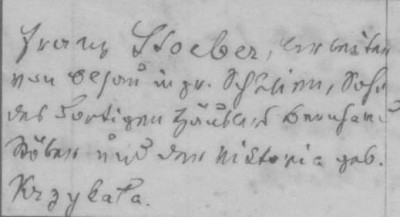 Franz Stoeber, Arbeiter
von Desau in pr. Schlesien, Sohn
des dortigen Häuslers Bernhard
Stöber und der Viktoria geb.
Krzykala.